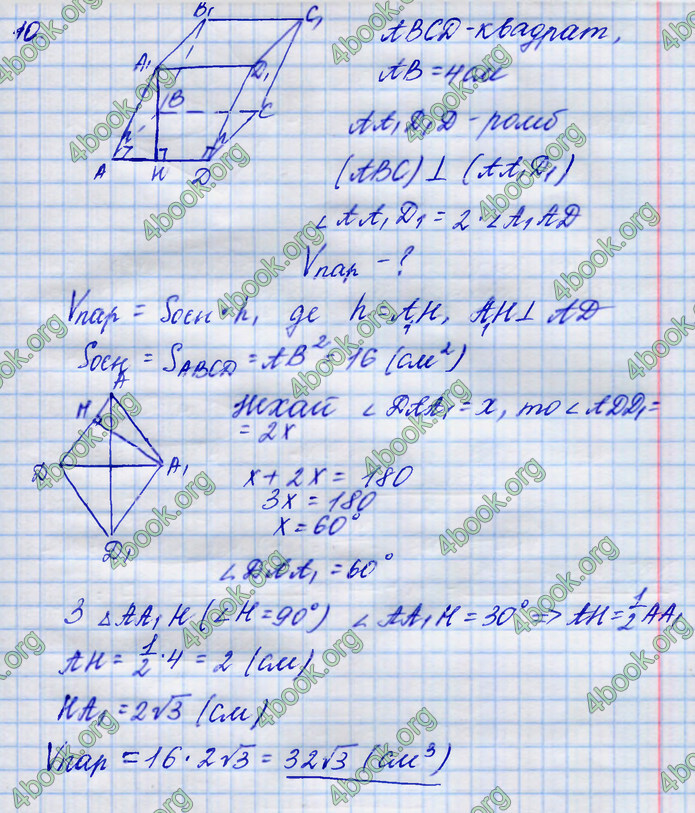 10.
B₁ C₁
A₁ D₁
B C
A H D
ABCD - квадрат,
AB = 4 см
AA₁D₁D - ромб
(ABC) ⊥ (AA₁D₁)
∠AA₁D₁ = 2·∠A₁AD
Vпар - ?
Vпар = Sосн · h, де h = A₁H, A₁H ⊥ AD
Sосн = S_ABCD = AB² = 16 (см²)
A
H
D A₁
D₁
Нехай ∠DAA₁ = x, то ∠ADD₁ =
= 2x
x + 2x = 180
3x = 180
x = 60°
∠DAA₁ = 60°
З △AA₁H (∠H = 90°) ∠AA₁H = 30° => AH = 1/2 AA₁
AH = 1/2 · 4 = 2 (см)
HA₁ = 2√3 (см)
Vпар = 16 · 2√3 = 32√3 (см³)
4book.org